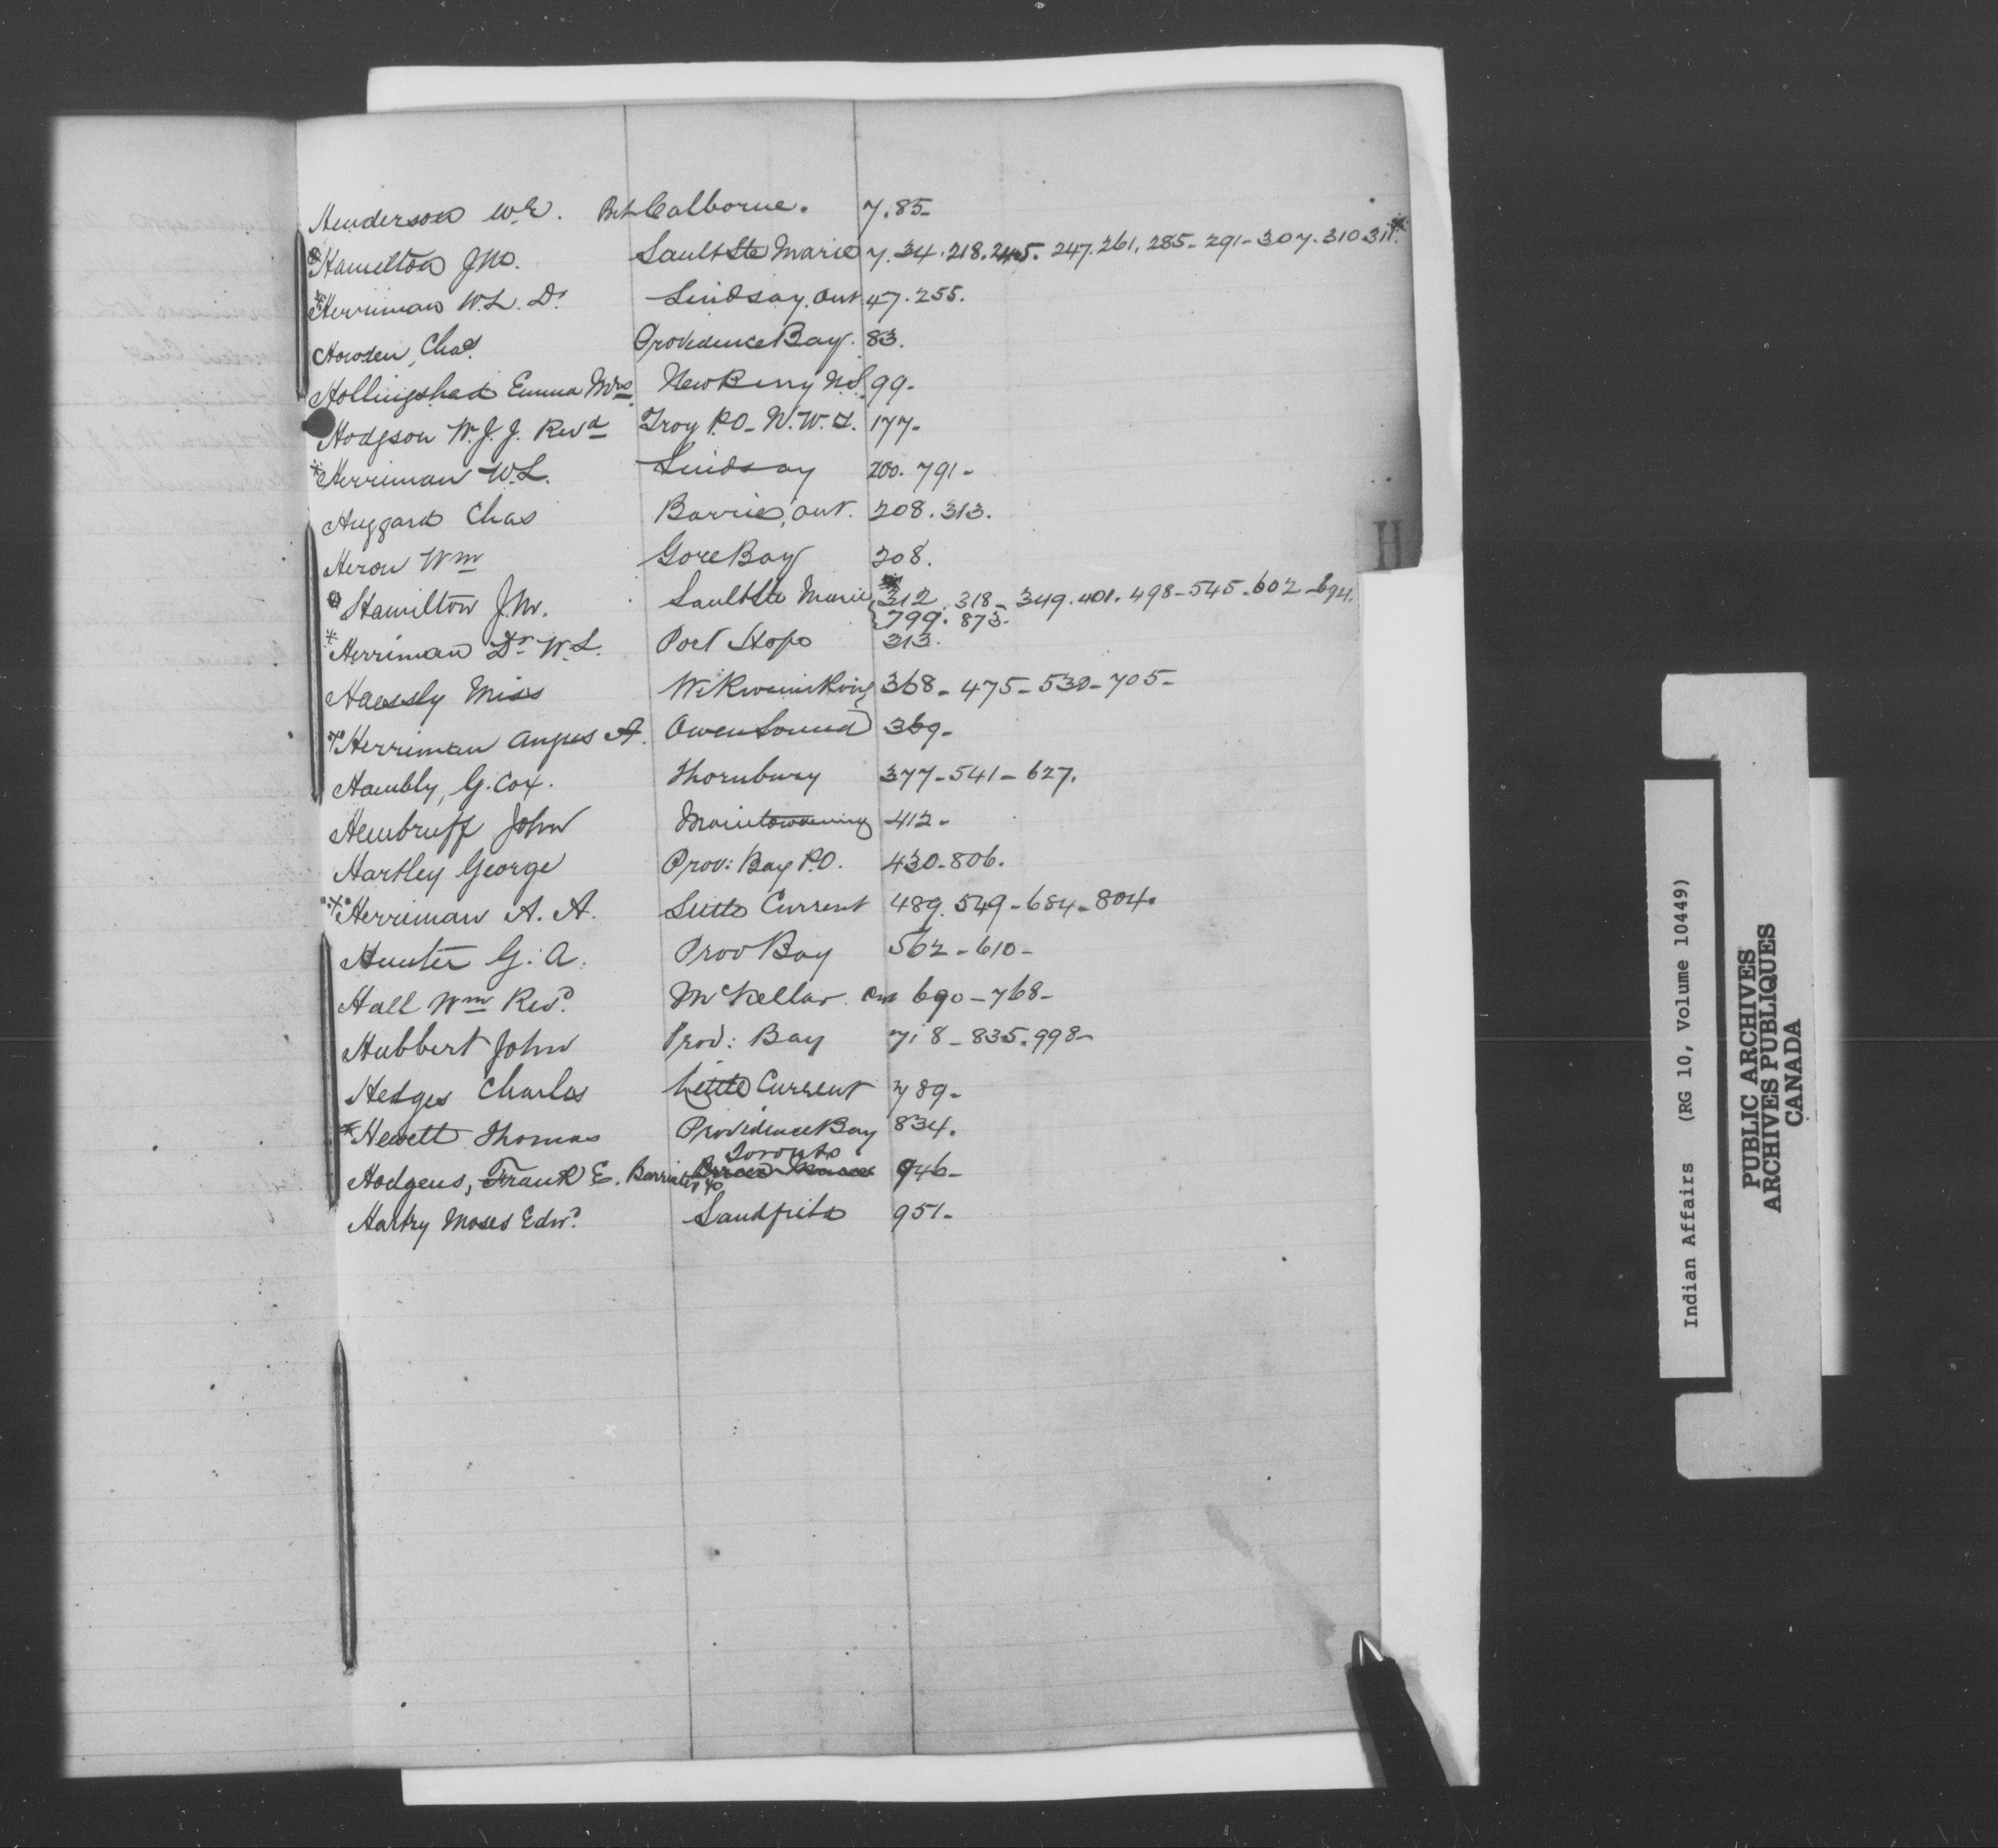 Henderson W.E. Prt Colborne. 7.85-
Hamilton Jno. Sault Ste Marie 7.34.218.245.247.261.285-291-307.310.311.*
*Herriman W.L. Dr Lindsay. Ont 47.255.
Howden, Chas. Providence Bay. 83.
Hollingshead Emma Mrs New 99-
Hodgson W.J.J. Revd Troy P.O- N.W.T. 177-
*Herriman W.L. Lindsay 200. 791-
Huggard Chas Barrie, Ont. 208.313.
Heron Wm Gore Bay 208.
Hamilton J.M. Sault Ste Marie 312. 318- 349.401.498-545-602-694.
799. 873-
*Herriman Dr W.L. Port Hope 313.
Haessly Miss Wikwemikong 368- 475-530-705-
*Herriman Angus A. Owen Sound 369-
Hambly, G. Cox. Thornbury 377-541-627.
Hembruff John Manitowaning 412-
Hartley George Prov: Bay P.O. 430-806.
*Herriman A. A. Little Current 489. 549-684-804.
Hunter G. A. Prov Bay 562-610-
Hall Wm Revd McKellar. Ont 690-768-
Hubbert John Prov: Bay 718-835.998-
Hedges Charles Little Current 789-
*Hewett Thomas Providence Bay 834.
Toronto
Hodgens, Frank E. Barrister 946-
Hartry Moses Edwd Sandfield 951-
H
Indian Affairs (RG 10, Volume 10449)
PUBLIC ARCHIVES
ARCHIVES PUBLIQUES
CANADA